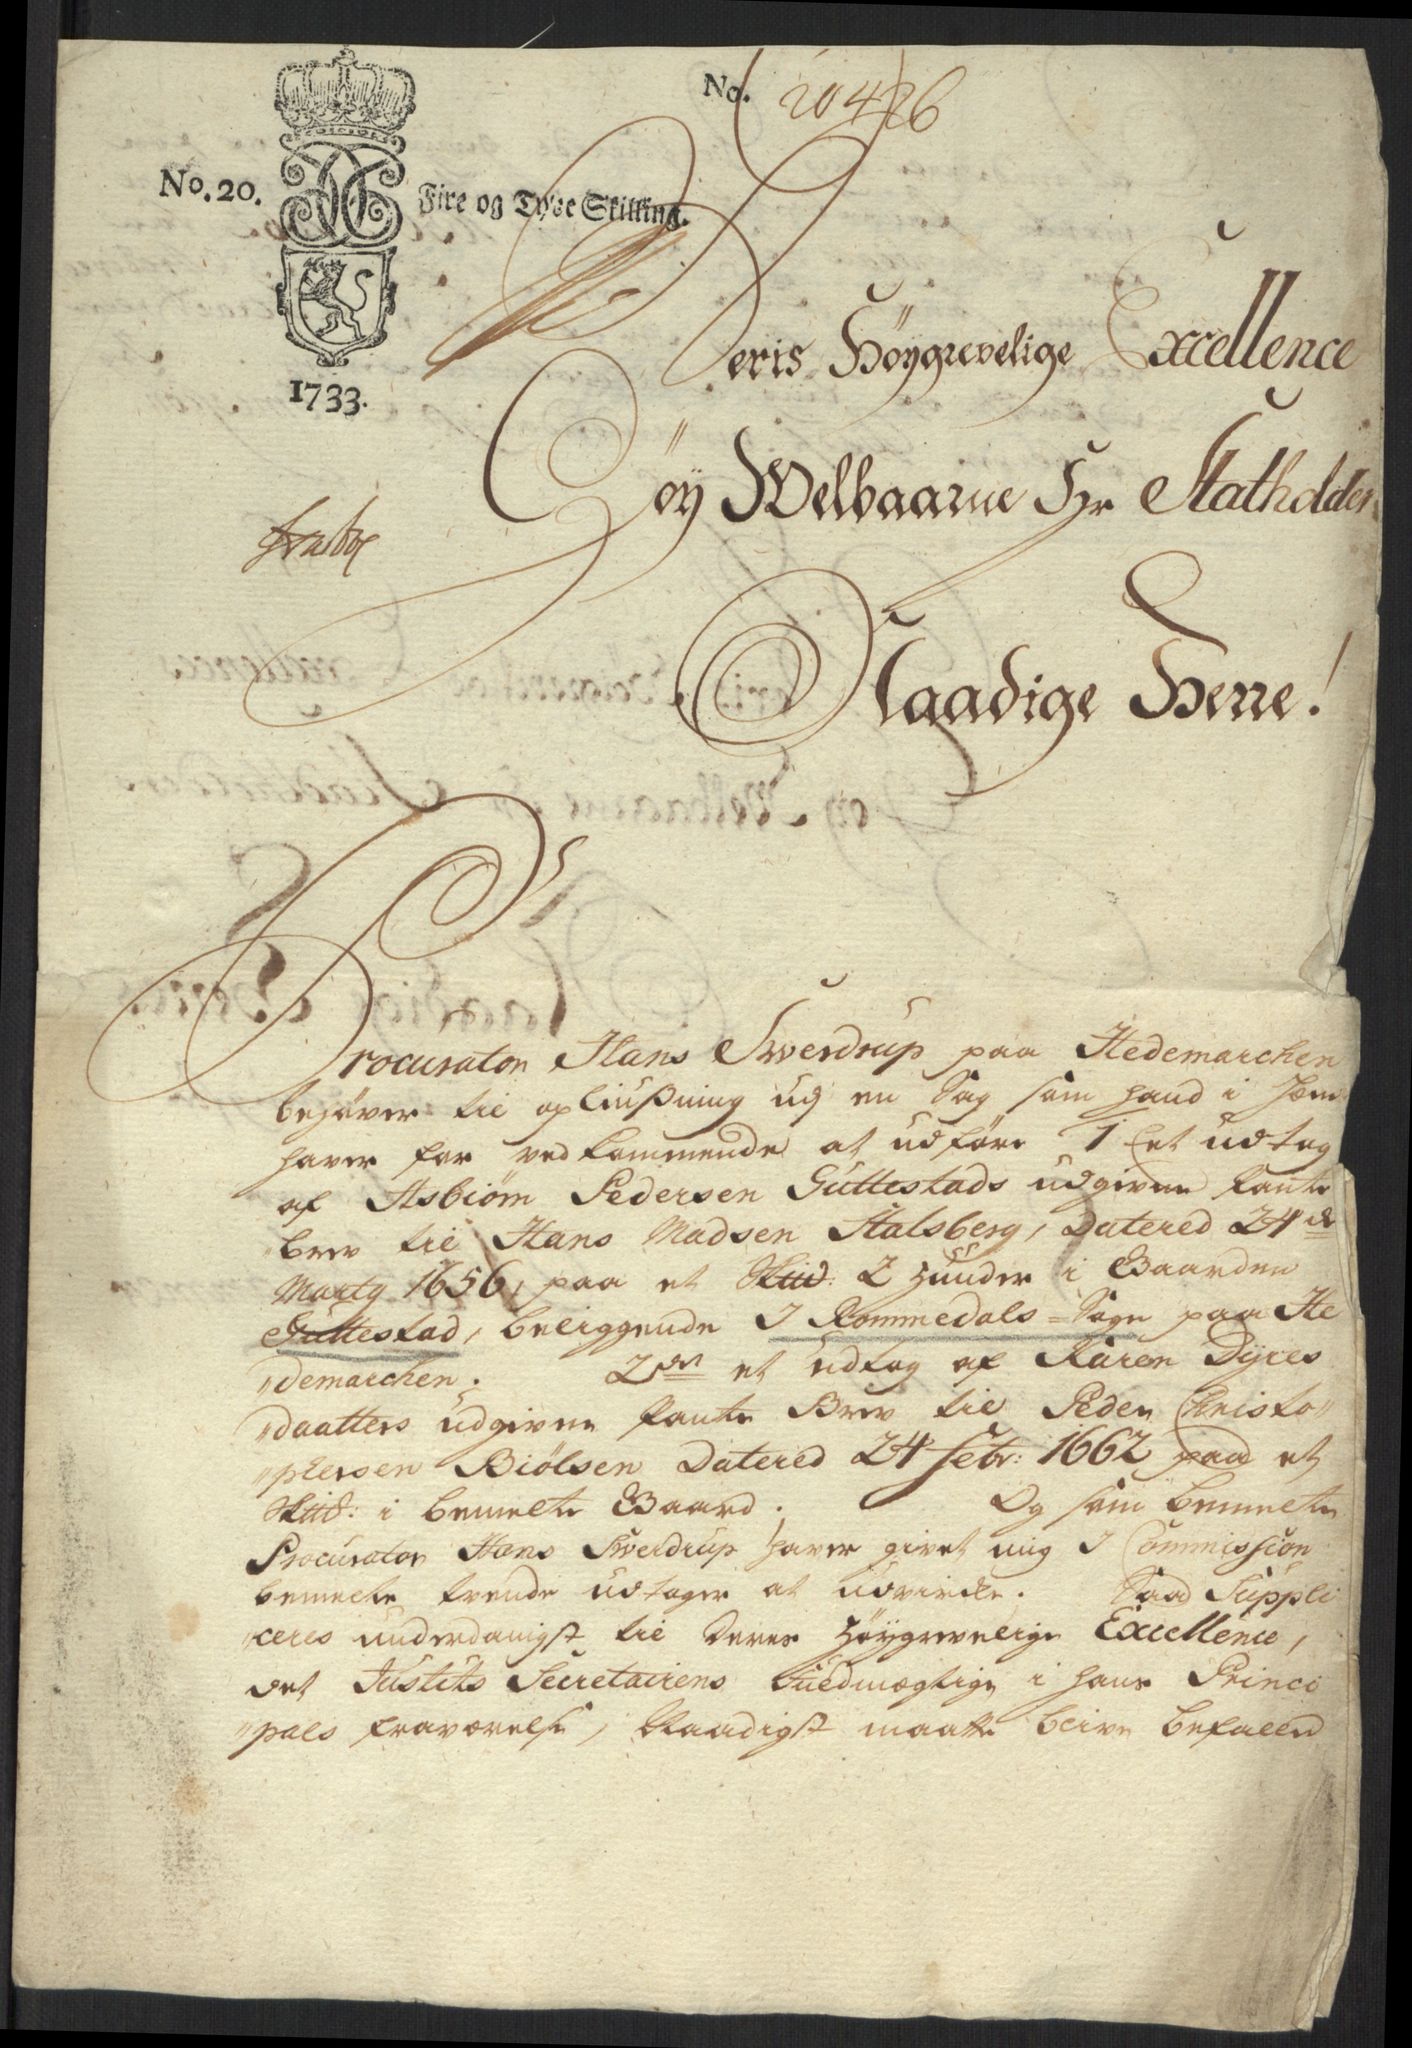 No. 20426
No. 20.
Fire og Tyve Skilling.
1733.
Deris Höygrevelige Excellence
Höy Welbaarne Hr Statholder
Naadige Herre!
Procurator Hans Swerdrup paa Hedemarchen
behøver til opliusning udj en Sag som hand i
haver for vedkommende at udføre 1 et udtog
af Asbiörn Pedersen Guttestads udgivne Pante
brev til Hans Madsen Stalsberg, Datered 24de
Marty 1656, paa et Skud: 2 Hunder i Gaarden
Guttestad, beliggende I Rommedals Sogn paa He
demarchen. 2den et udtog af Karen Dyres
daatters udgivne Pante Brev til Peder Christo
phersen Biölsen Datered 24 Febr: 1662 paa et
Skud: i bemelte Gaard. Og som bemelte
Procurator Hans Swerdrup haver givet mig I Commission
bemelte tvende udtoger at udvirche. Saa Suppli
ceres underdanigst til Deres Höygrevelige Excellence,
det Justits Secretairens fuldmægtige i hans Princi
pals fraværelse, Naadigst maatte blive befalen